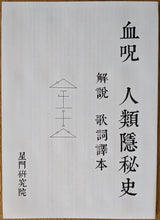 血呪 人類隱秘史
解說 歌詞譯本
星門硏究院